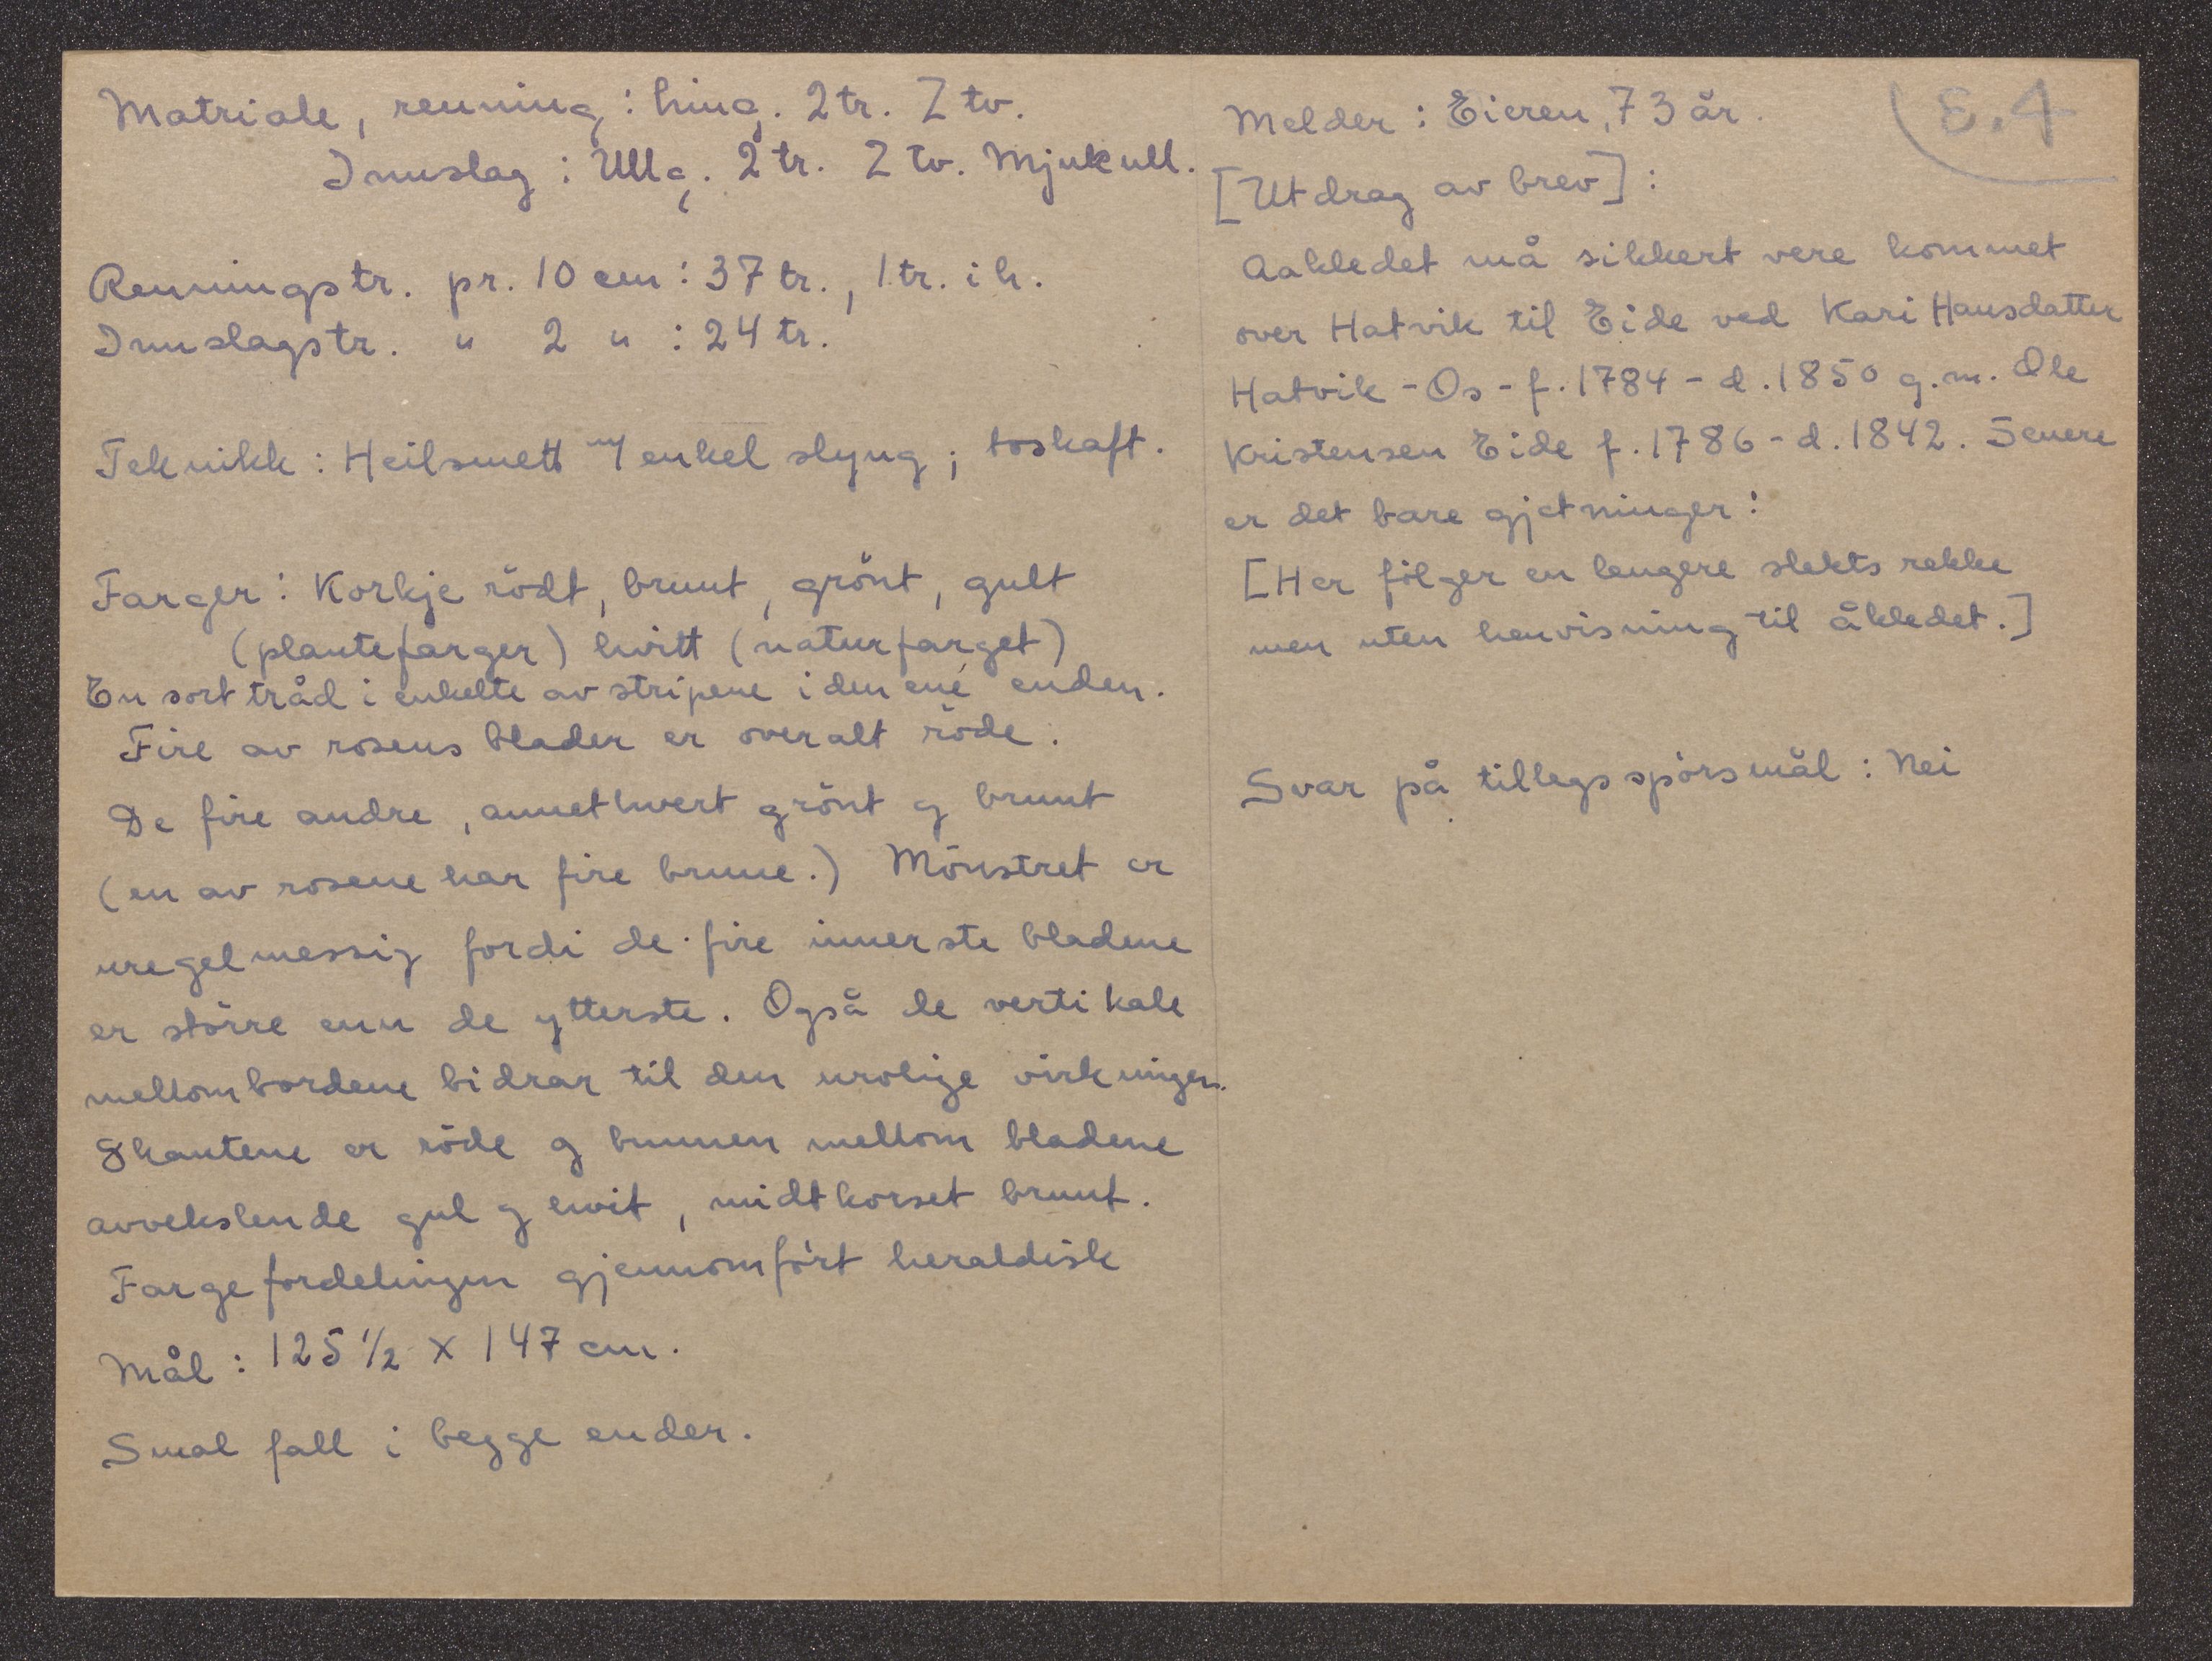 Matriale, renning: Ling. 2tr. Z tv.
Innslag: Ullg. 2 tr. Z tv. Mjuk ull.
Renningstr. pr. 10 cm: 37 tr., 1 tr. i h.
Innslagstr. " 2 " : 24 tr.
Teknikk: Heilsmett m/ enkel slyng; toskaft.
Farger: Korkje rödt, brunt, grönt, gult
(plantefarger) hvitt (naturfarget)
En sort tråd i enkelte av stripene i den ene enden.
Fire av rosens blader er overalt röde.
De fire andre, annethvert grönt og brunt
(en av rosene har fire brune.) Mönstret er
uregelmessig fordi de fire innerste bladene
er större enn de ytterste. Også de vertikale
mellombordene bidrar til den urolige virkningen.
8kantene er röde og bunnen mellom bladene
avvekslende gul og hvit, midtkorset brunt.
Fargefordelingen gjennomfört heraldisk
Mål: 125 1/2 x 147 cm.
Smal fall i begge ender.
E.4
Melder: Eieren, 73 år.
[Utdrag av brev]:
Aakledet må sikkert vere kommet
over Hatvik til Eide ved Kari Hansdatter
Hatvik - Os - f. 1784 - d. 1850 g.m. Ole
Kristensen Eide f. 1786 - d. 1842. Senere
er det bare gjetninger:
[Her fölger en lengere slekts rekke
men uten henvisning til åkledet.]
Svar på tillegsspörsmål: Nei